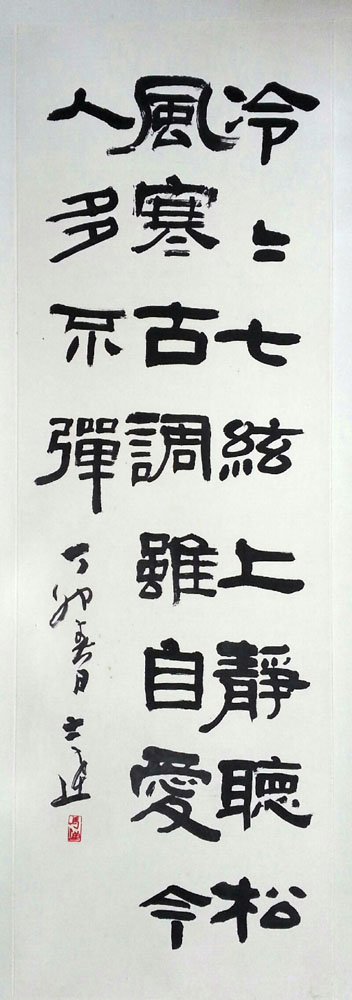 冷〻七絃上靜聽松
風寒古調雖自愛今
人多不彈
丁卯春日士達